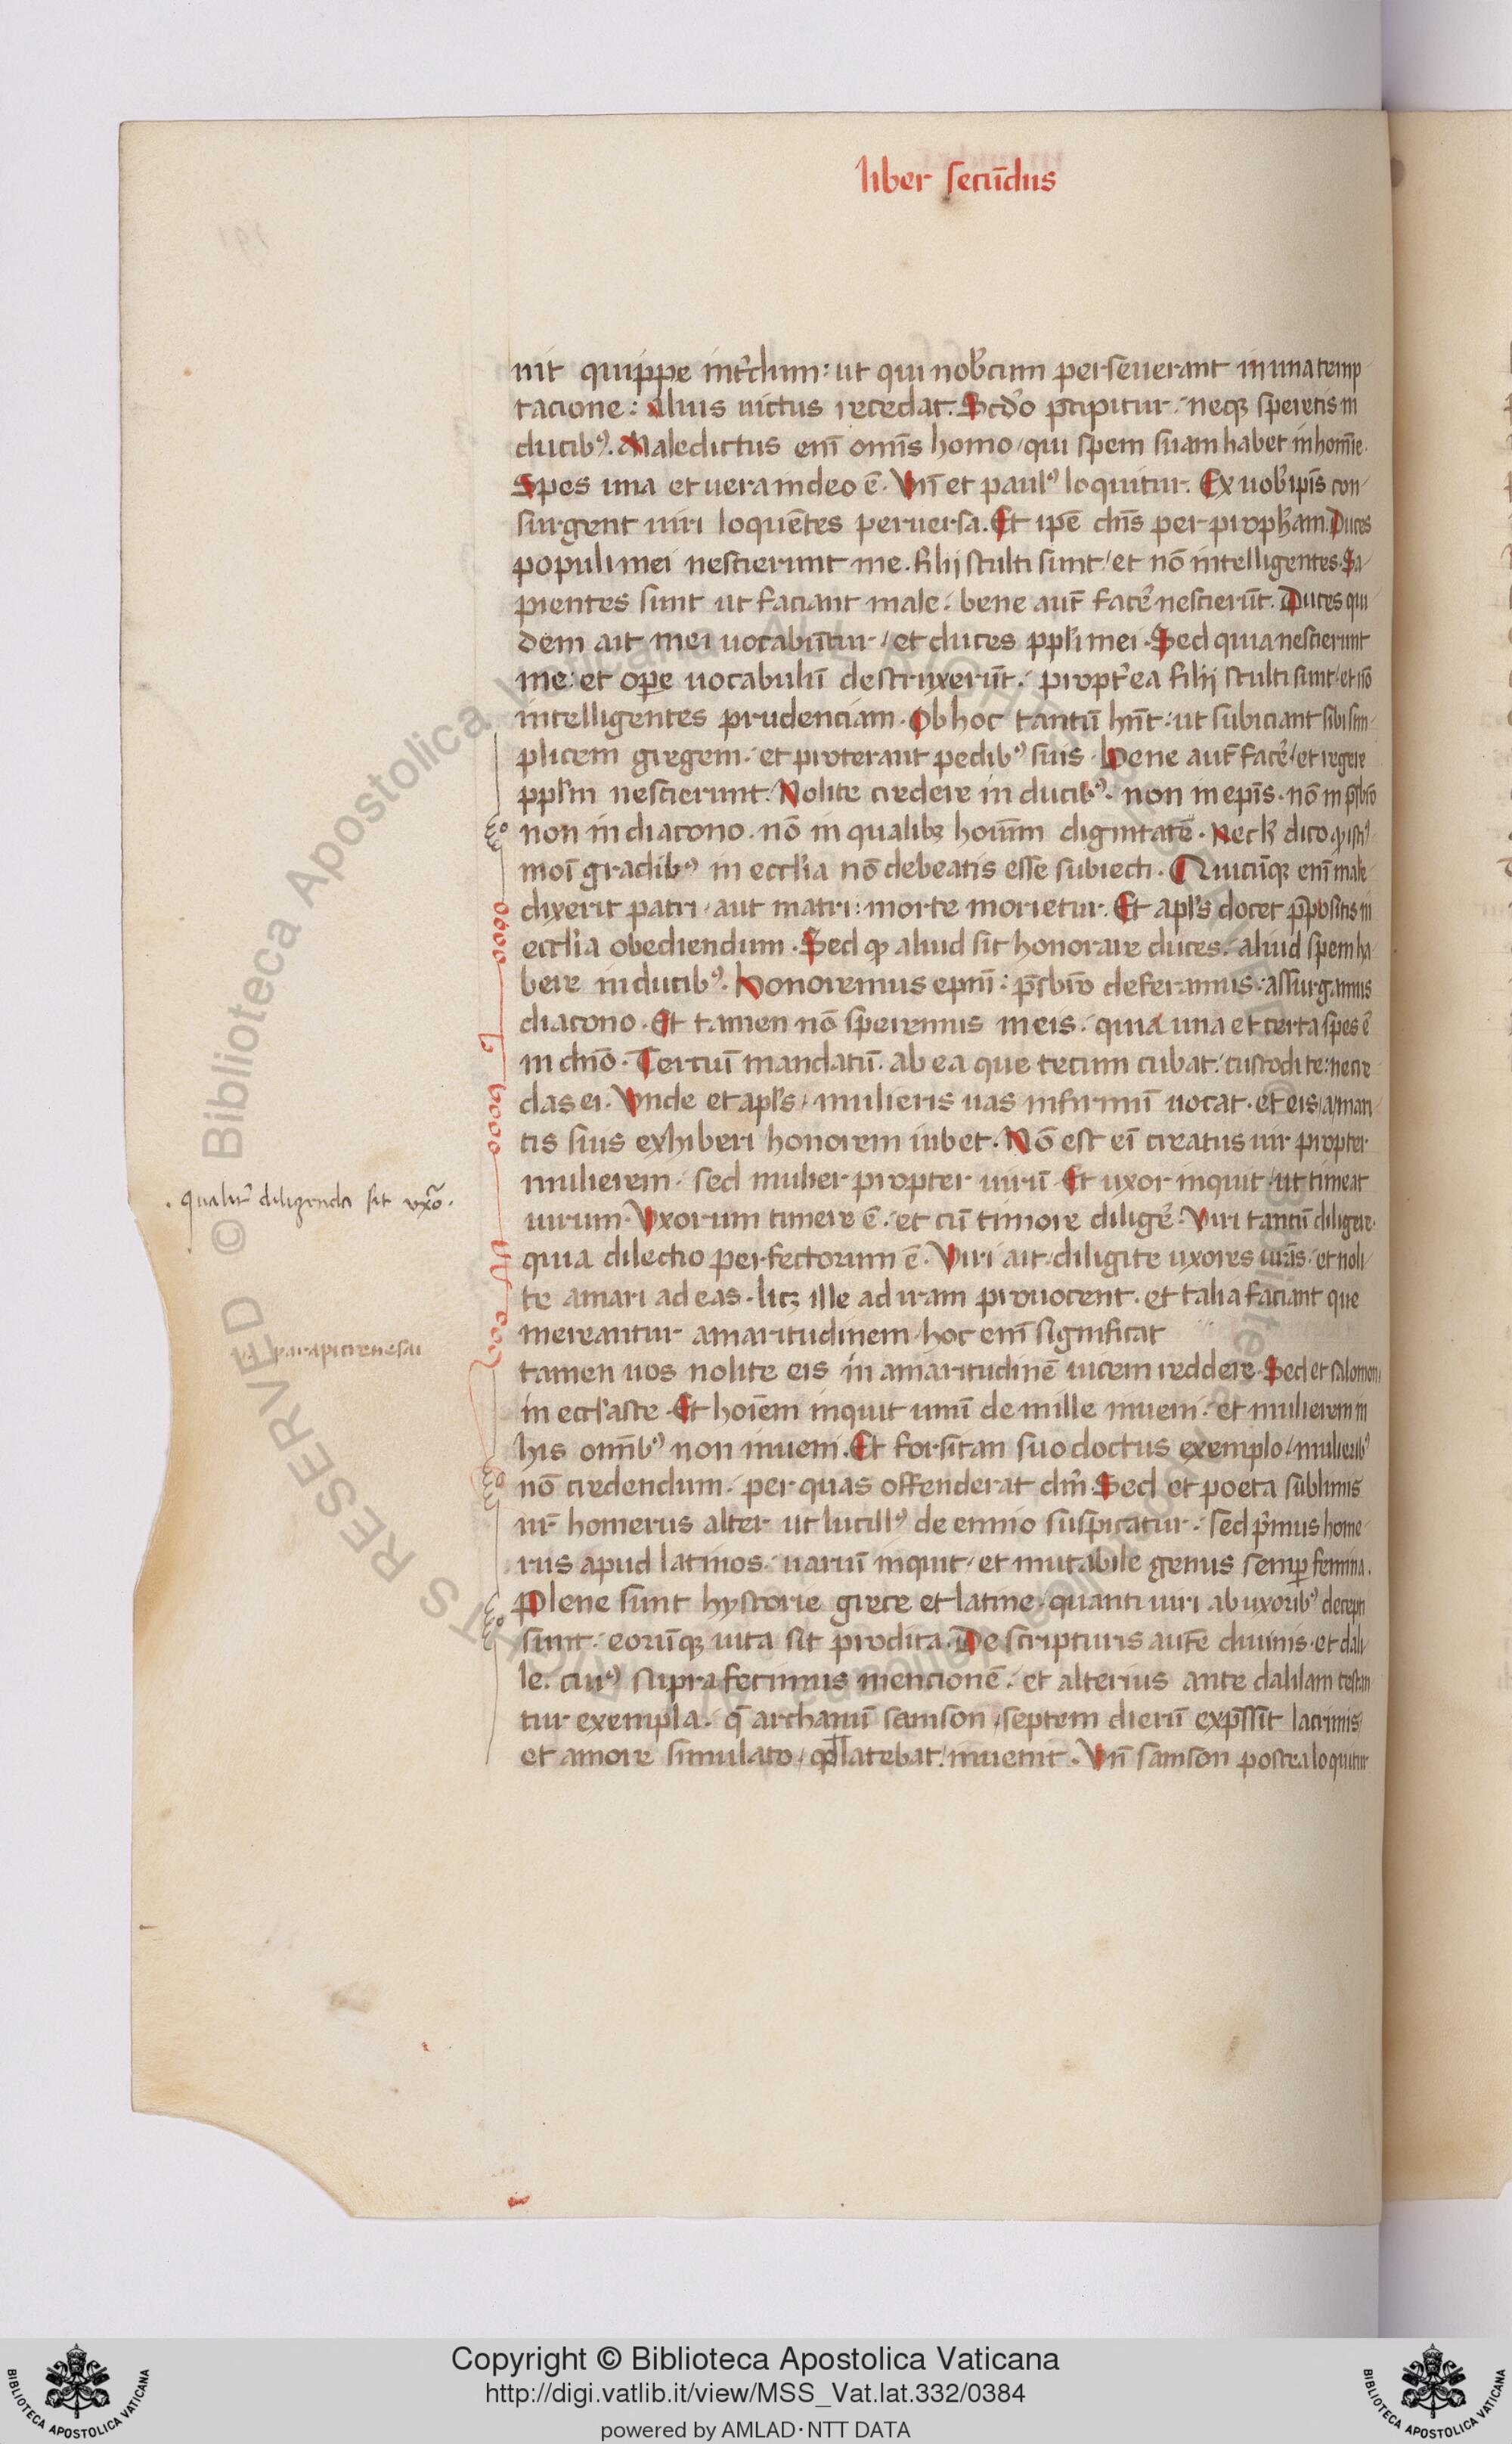 liber secu̅dus
nit quippe int̉dum: ut qui nob̉cum perseuerant in una temp
tacione: alius uictus recedat. Scd̉o p̅cipitur. neqꝫ speretis in
ducibꝰ. Maledictus eni̅ omi̅s homo / qui spem suam habet in ho̅i̅e.
Spes una et uera in deo e̅. Vn̅ et paulꝰ loquitur. Ex uob̉ ip̅is con
surgent uiri loque̅tes peruersa. Et ipe̅ dn̅s per proph̅am. Duces
populi mei nescierunt me. filij stulti sunt / et no̅ intelligentes. Sa
pientes sunt ut faciant male. bene aut̅ facer̉ nescieru̅t. Duces qui
dem ait mei uocabu̅tur / et duces ppl̉i mei. Sed quia nescierunt
me: et oꝑe uocabulu̅ destruxeru̅t. propt̉ea filij stulti sunt / et no̅
intelligentes prudenciam. Ob hoc tantu̅ hn̅t: ut subiciant sibi sim
plicem gregem. et proterant pedibꝰ suis. bene aut̅ facer̉ / et regere
ppl̉m nescierunt. Nolite credere in ducibꝰ. non in epi̅s. no̅ in p̅sbr̅o
non in diacono. no̅ in qualibꝫ hoiu̅m dignitate̅. Nec h̉ dico ꝙ isti
moi̅ gradibꝰ in eccl̉ia no̅ debeatis esse subiecti. Quicu̅qꝫ eni̅ male
dixerit patri / aut matri: morte morietur. Et apl̉s docet p̅positis in
eccl̉ia obediendum. Sed ꝙ aliud sit honorare duces. aliud spem ha
bere in ducibꝰ. honoremus epm̅: p̅sbr̅o deferamus. assurgamus
diacono. Et tamen no̅ speremus in eis. quia una et certa spes e̅
in dn̅o. Terciu̅ mandatu̅. ab ea que tecum cubat. custodi te: ne cre
das ei. Vnde et apl̉s / mulieris uas infirmu̅ uocat. et eis a man
tis suis exhiberi honorem iubet. No̅ est ei̅ creatus uir propter
mulierem. sed mulier propter uiru̅. Et uxor inquit / ut timeat
uirum. Vxorum timere e̅. et cu̅ timore diliger̉. Viri tantu̅ diligere.
. qualit̉ diligenda sit uxo̅.
quia dilectio perfectorum e̅. Viri ait. diligite uxores ur̅as. et noli
te amari ad eas. licꝫ ille ad iram prouocent. et talia faciant que
mereantur amaritudinem / hoc eni̅ significat
tamen uos nolite eis in amaritudine̅ uicem reddere. Sed et salomon
in eccl̉aste. Et hoi̅em inquit unu̅ de mille inueni. et mulierem in
his omi̅bꝰ non inueni. Et forsitan suo doctus exemplo / mulieribꝰ
no̅ credendum. per quas offenderat dm̅. Sed et poeta sublimis
nr̅ homerus alter ut lucillꝰ de ennio suspicatur. sed p̉mus home
rus apud latinos. uariu̅ inquit / et mutabile genus semꝑ femina.
Plene sunt hystorie grece et latine / quanti uiri ab uxoribꝰ decepti
sunt. eoru̅qꝫ uita sit prodita. De scripturis aute̅ diuinis. et dali
le. cuiꝰ supra fecimus mencione̅. et alterius ante dalilam testan
tur exempla. q̅ archanu̅ samson / septem dieru̅ exp̅ssit lacrimis
et amore simulato / qd̅ latebat / inuenit. Vn̅ samson postea loquitur
Copyright © Biblioteca Apostolica Vaticana
http://digi.vatlib.it/view/MSS_Vat.lat.332/0384
powered by AMLAD·NTT DATA